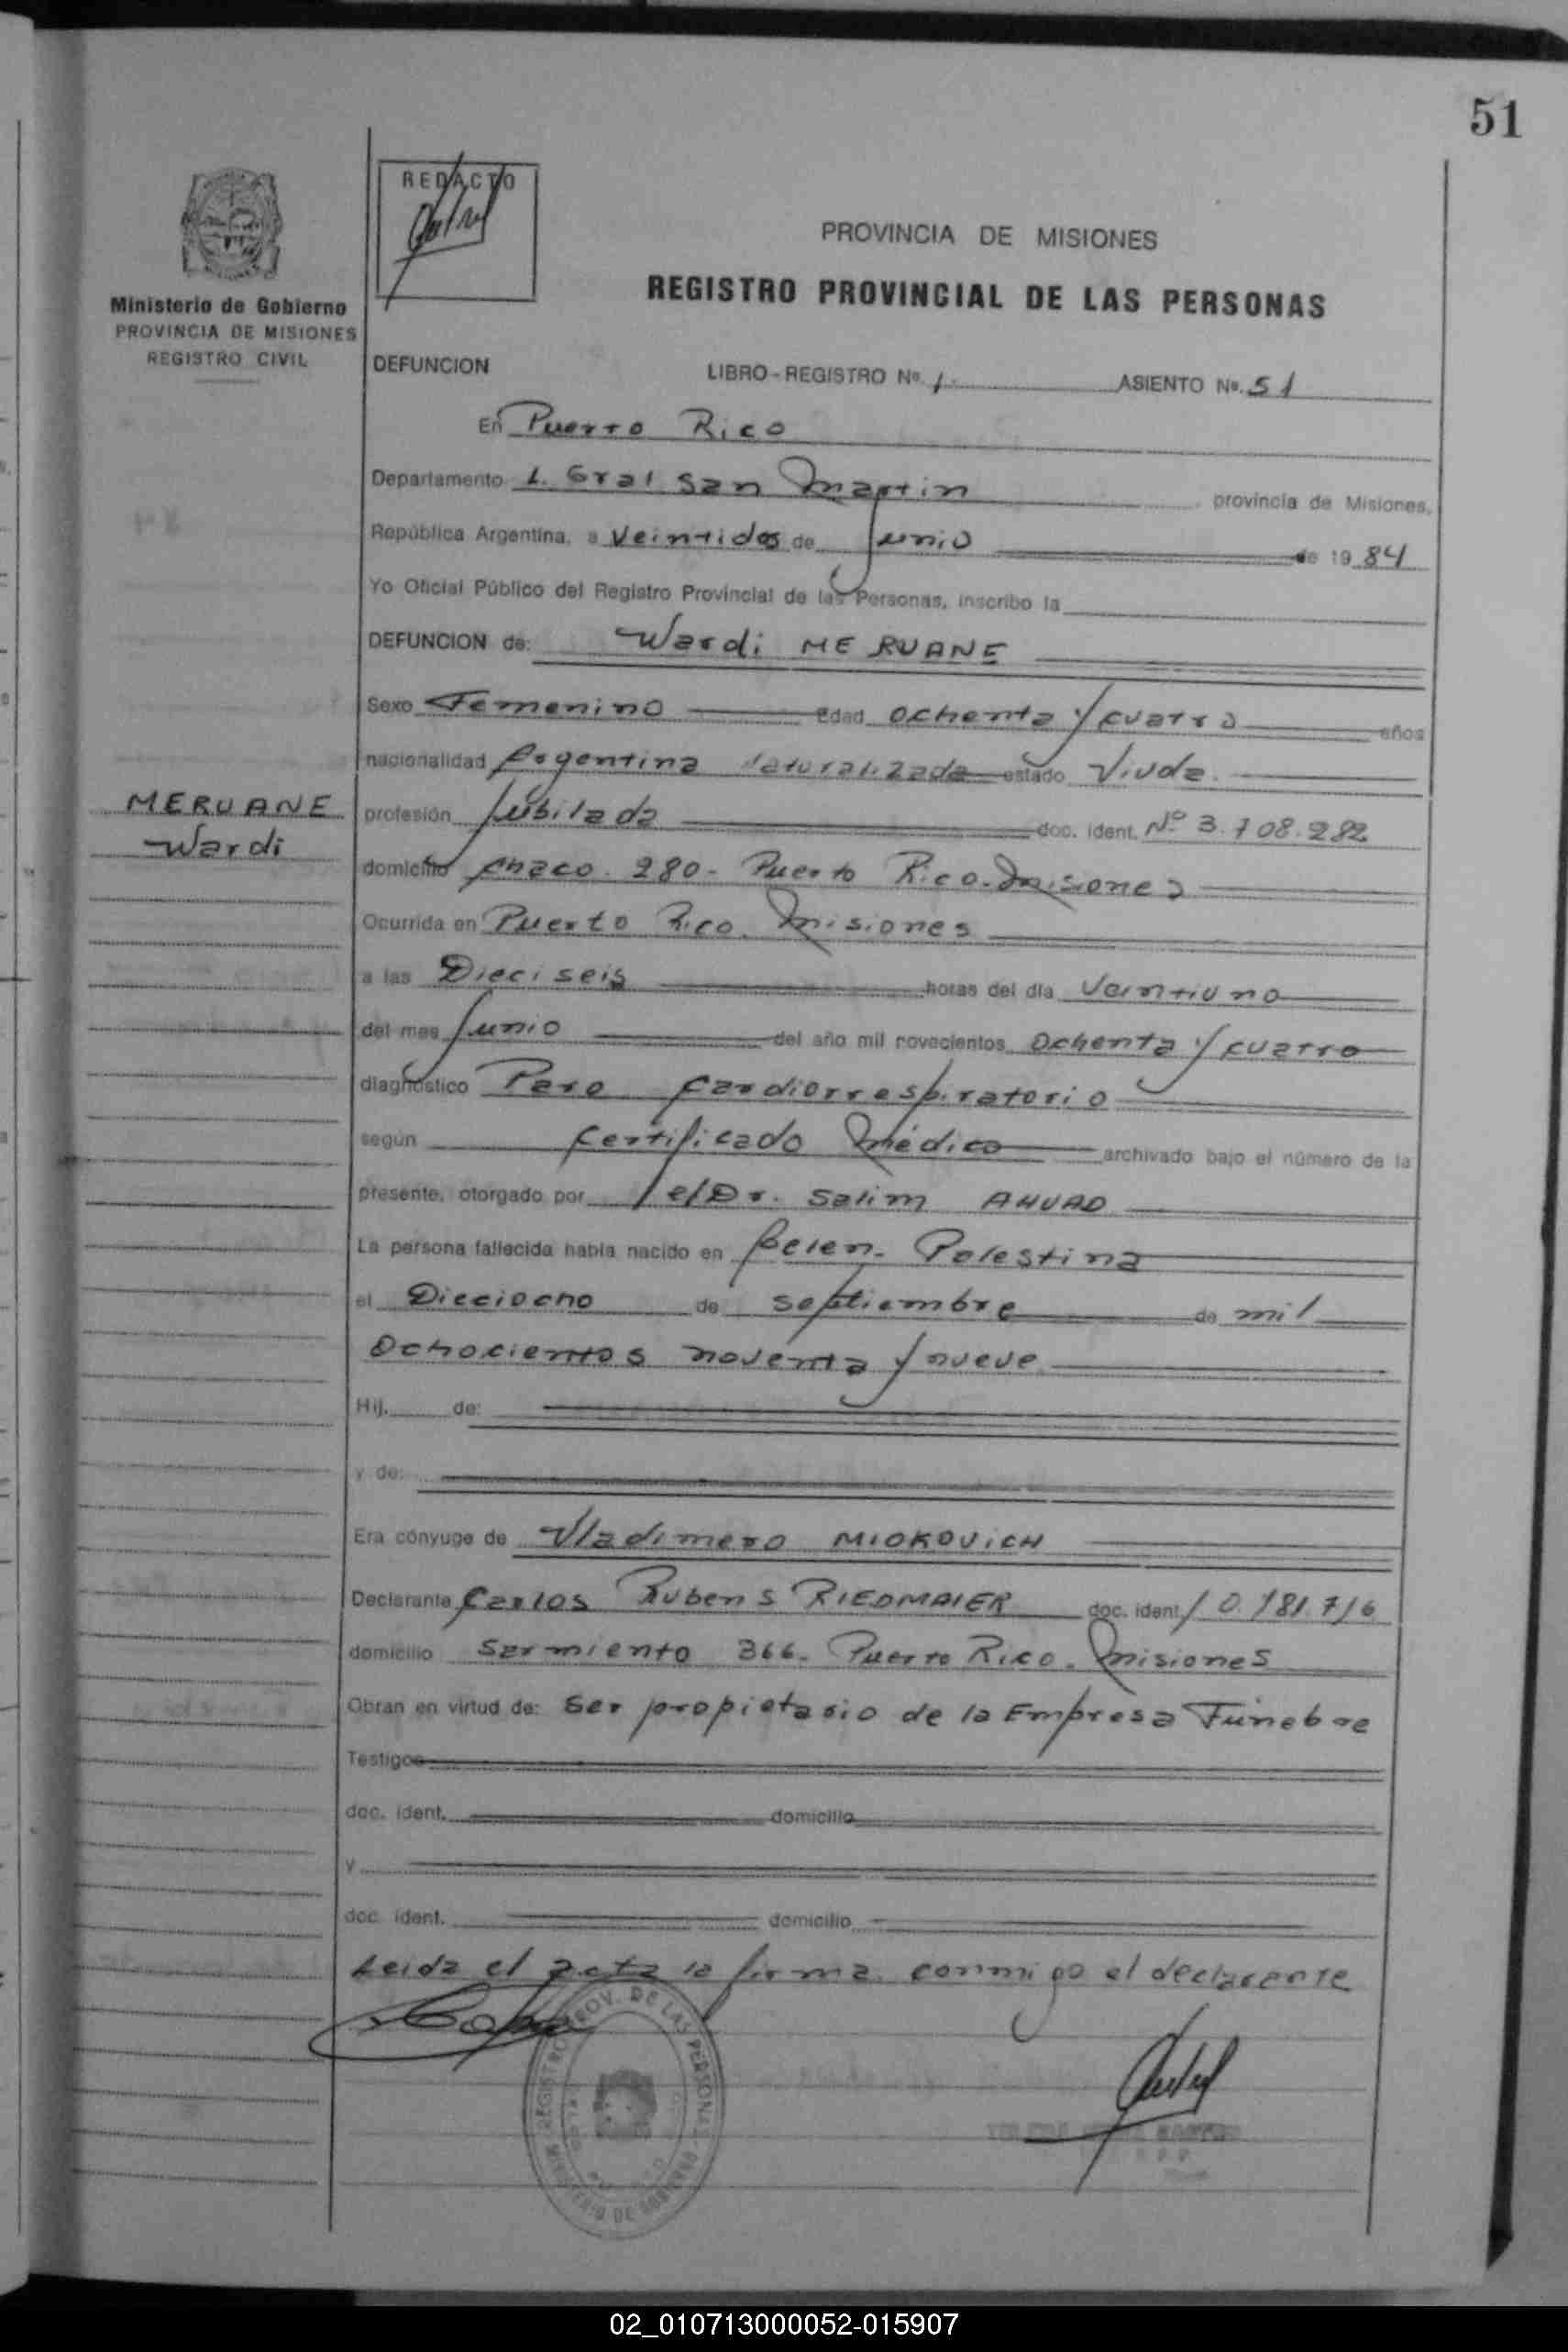 51
REDACTO
PROVINCIA DE MISIONES
REGISTRO PROVINCIAL DE LAS PERSONAS
Ministerio de Gobierno
PROVINCIA DE MISIONES
REGISTRO CIVIL
DEFUNCION LIBRO-REGISTRO Nº. 1. ASIENTO Nº. 51
En Puerto Rico
Departamento L. Gral San Martin provincia de Misiones,
República Argentina, a Veintidos de Junio de 1984
Yo Oficial Público del Registro Provincial de las Personas, inscribo la
DEFUNCION de: Wardi MERUANE
Sexo Femenino Edad Ochenta y cuatro años
nacionalidad Argentina Naturalizada estado Viuda.
MERUANE
Wardi
profesión Jubilada doc. ident. Nº 3.708.282
domicilio Chaco. 280- Puerto Rico. Misiones
Ocurrida en Puerto Rico. Misiones
a las Dieciseis horas del día Veintiuno
del mes Junio del año mil novecientos Ochenta y cuatro
diagnóstico Paro Cardiorrespiratorio
según Certificado Médico archivado bajo el número de la
presente, otorgado por el Dr. Salim AHUAD
La persona fallecida había nacido en Belen- Palestina
el Dieciocho de Septiembre de mil
Ochocientos noventa y nueve
Hij. de:
y de:
Era cónyuge de Vladimero MIOKOVICH
Declarante Carlos Rubens RIEDMAIER doc. ident. 10.181.716
domicilio Sarmiento 366- Puerto Rico. Misiones
Obran en virtud de: Ser propietario de la Empresa Fúnebre
Testigos
doc. ident. domicilio
y
doc. ident. domicilio
Leida el acta la firma conmigo el declarante
REGISTRO PROV. DE LAS PERSONAS
MINISTERIO DE GOBIERNO
02_010713000052-015907